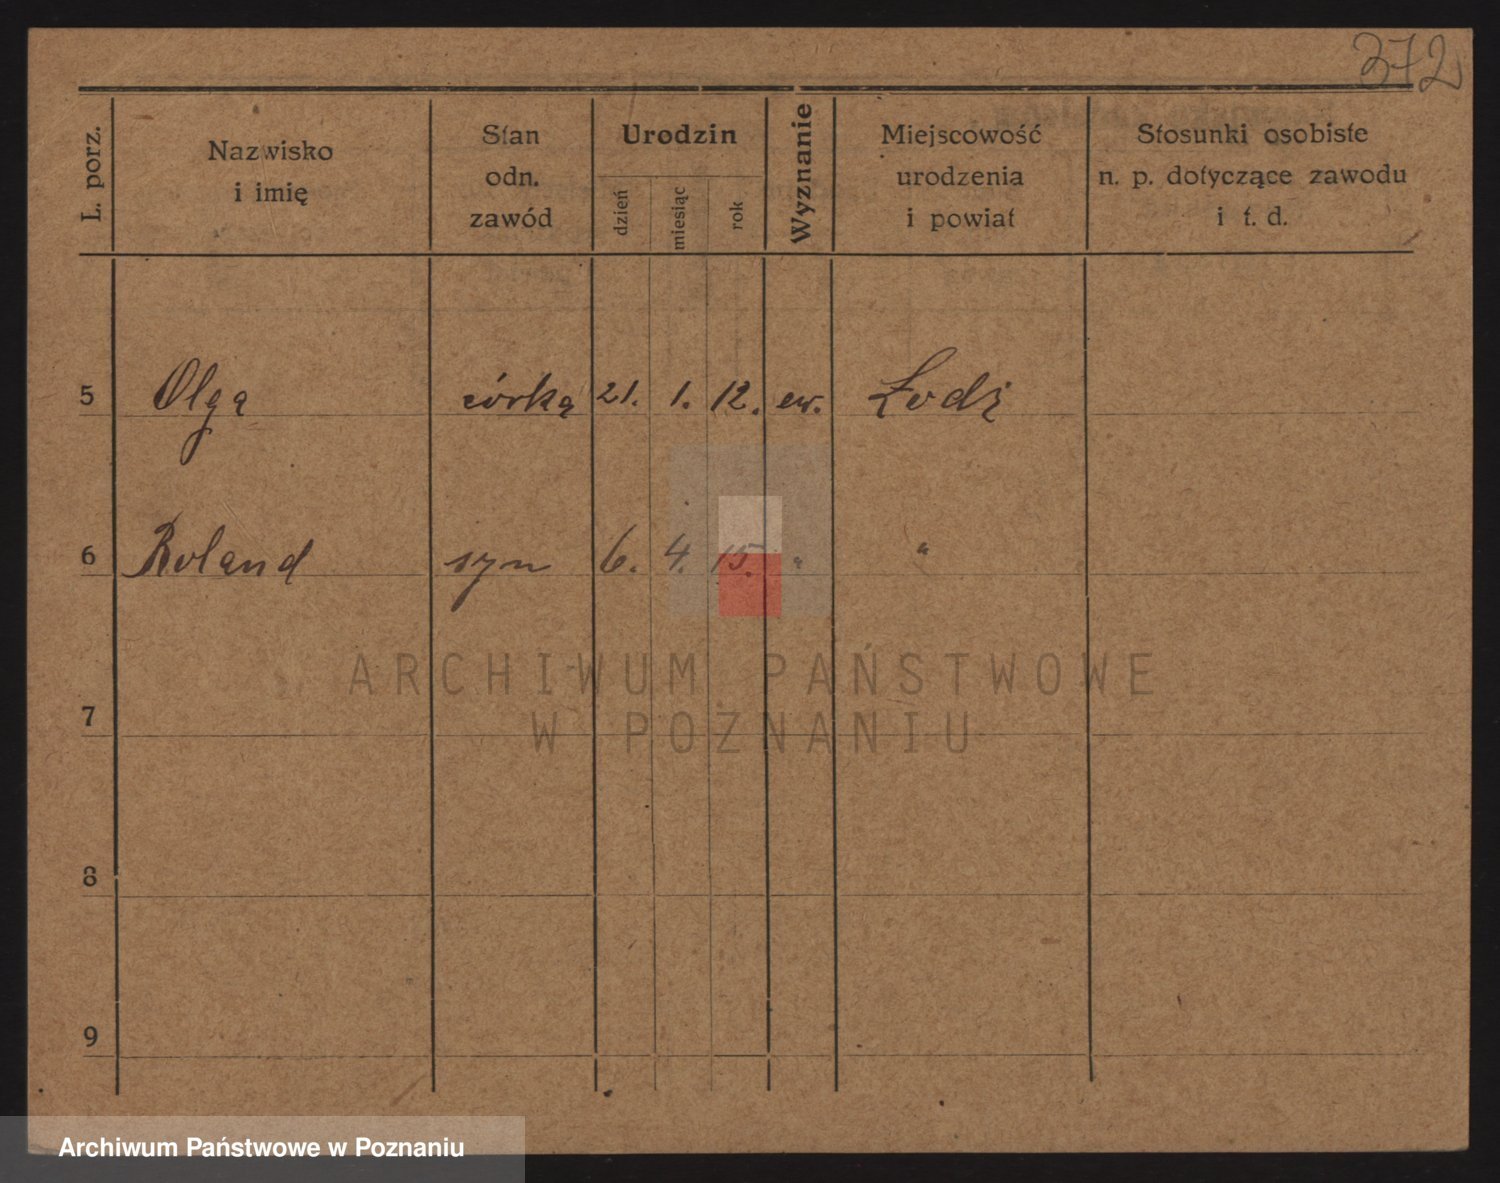 372
L. porz.
Nazwisko
i imię
Stan
odn.
zawód
Urodzin
dzień
miesiąc
rok
Wyznanie
Miejscowość
urodzenia
i powiat
Stosunki osobiste
n. p. dotyczące zawodu
i t. d.
5 Olga córka 21. 1. 12. ew. Łodź
6 Roland syn 6. 4. 15. " "
ARCHIWUM PAŃSTWOWE
W POZNANIU
7
8
9
Archiwum Państwowe w Poznaniu